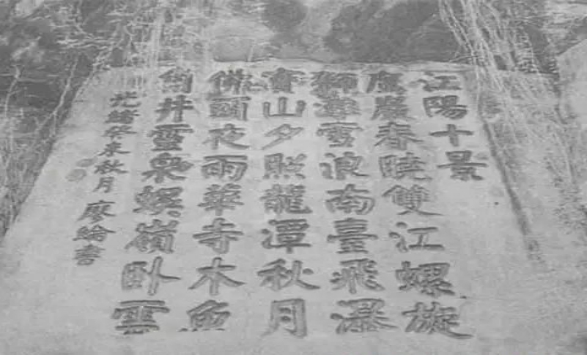 江陽十景
春曉雙江螺旋
獅灘雪浪南臺飛瀑
寶山夕照龍潭秋月
佛頭夜雨華寺木魚
井靈泉螺嶺臥雲
光緒秋月 廖綸書